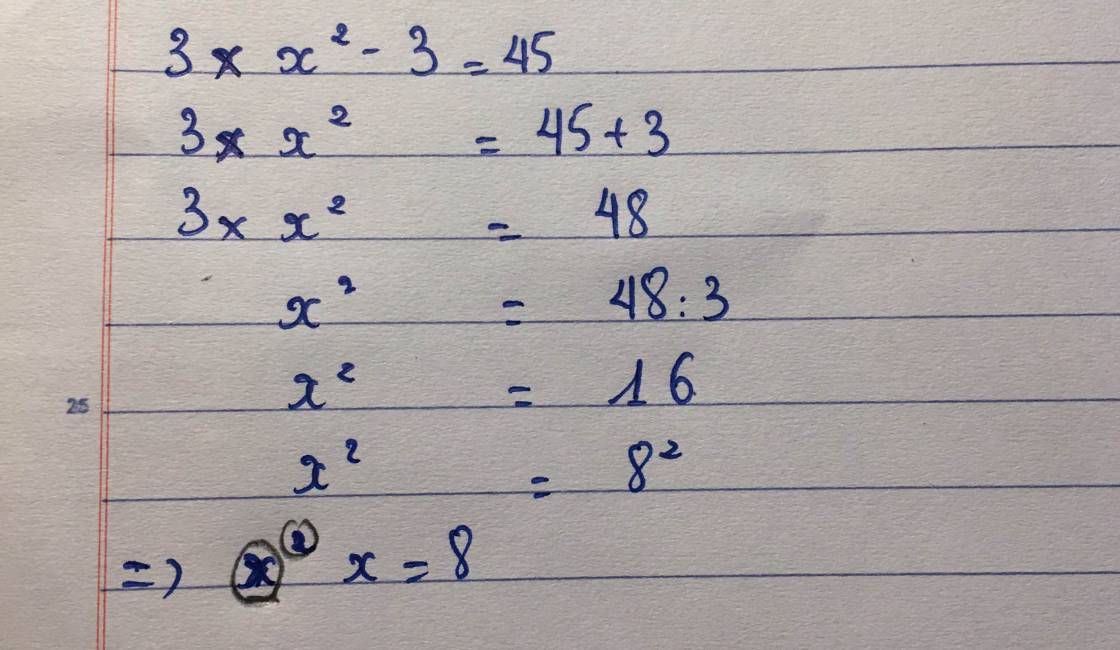 3 × x² - 3 = 45
3 × x² = 45 + 3
3 × x² = 48
x² = 48 : 3
25 x² = 16
x² = 8²
=> x² x = 8